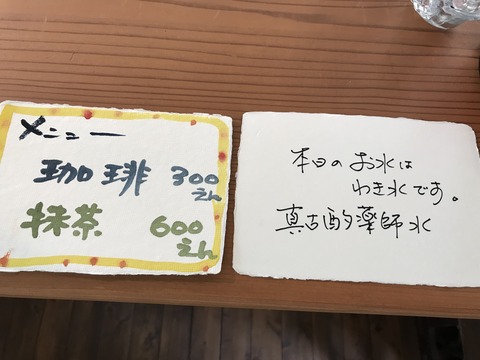 メニュー
珈琲 300
えん
抹茶 600
えん
本日のお水は
わき水です。
真古酌薬師水